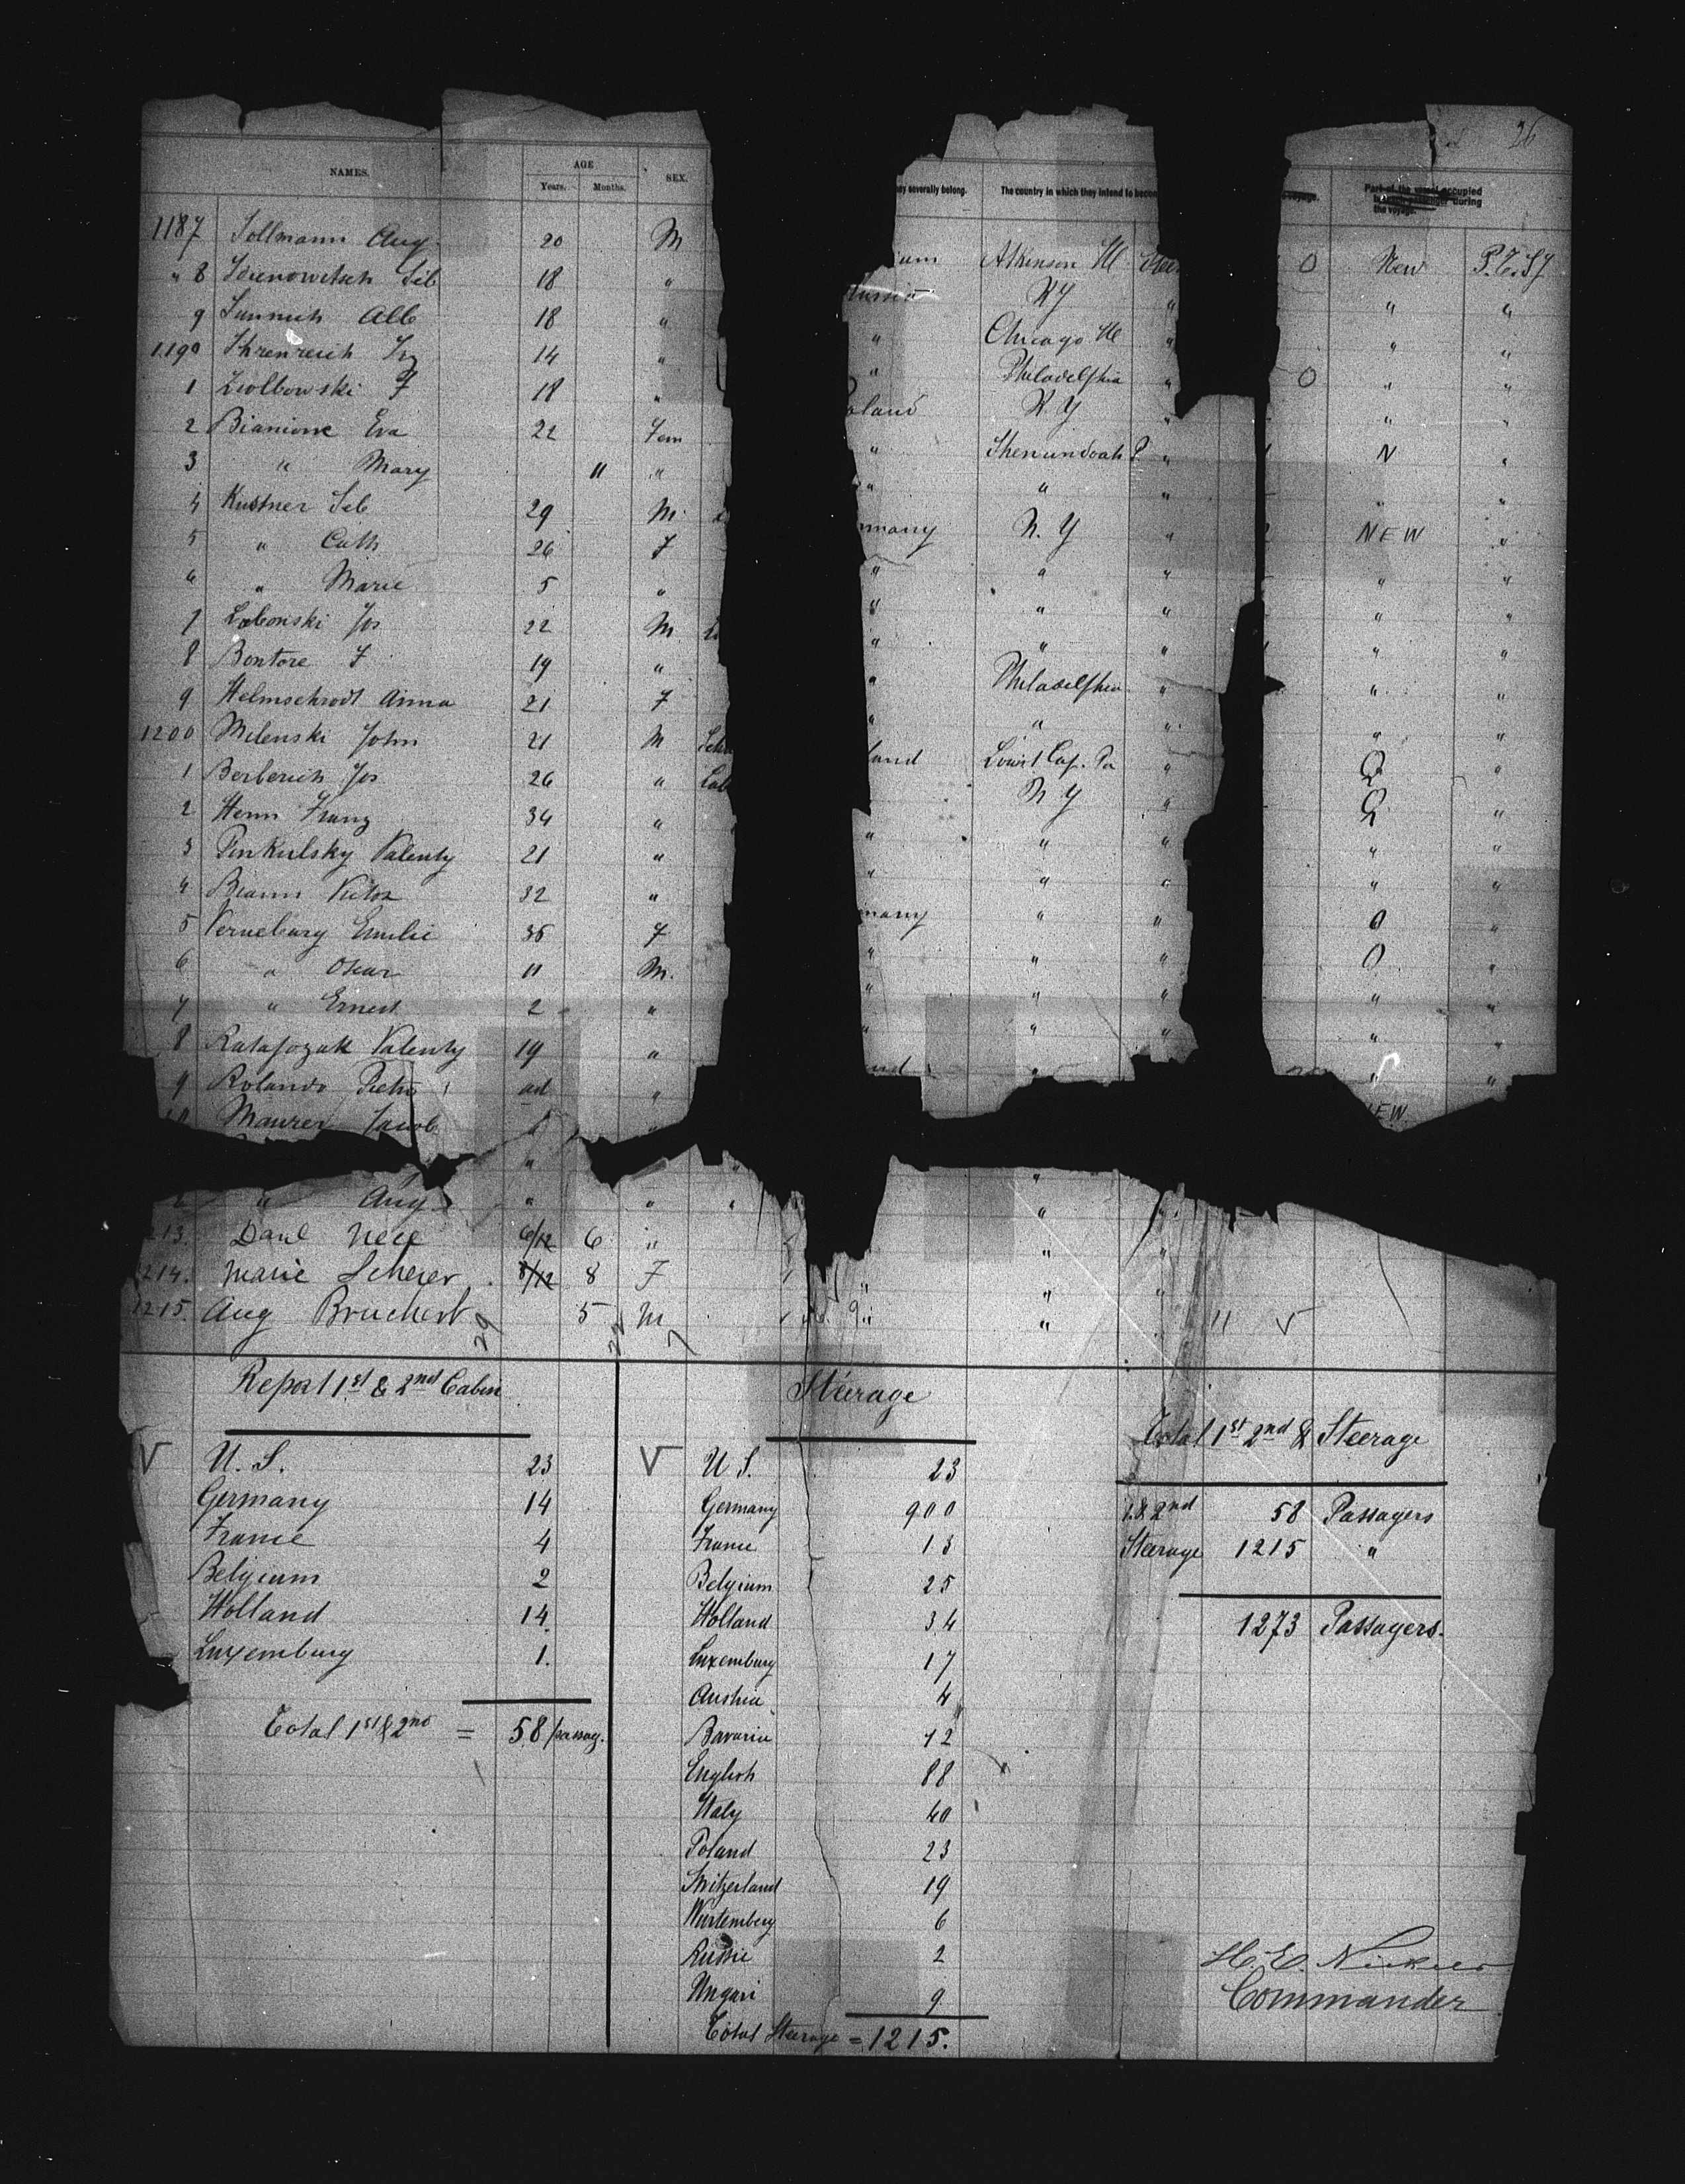 26
NAMES. AGE SEX. ey severally belong. The country in which they intend to becom voyage. Part of the vessel occupied
Years. Months. during
the voyage.
1187 Sollmann Aug 20 M ium Atkinson Ill O New
" 8 18 " Russia NY " " "
9 Alb 18 " " Chicago Ill " " "
1190 14 " " Philadelphia " O " "
1 Ziolbowski F 18 " oland N.Y " "
2 Bianione Eva 22 Fem " Shenundoah P. " N "
3 " Mary 11 " " " " " "
4 Kustner Seb 29 M. rmany N.Y " NEW "
5 " Cath 26 F " " " " "
6 " Marie 5 " " " " " "
7 Labonski Jos 22 M " " " " "
8 Bontore F 19 " " Philadelphia " " "
9 Helmschrodt Anna 21 F " " " " "
1200 Milenski John 21 M land Pa "
1 Berberich Jos 26 " Lab N Y " "
2 Henn Franz 34 " " " " " "
3 Pinkulsky Valenty 21 " " " " " "
4 Biann Victor 32 " many " " O "
5 Verneburg Emilie 35 F " " " O "
6 " Oscar 11 M. " " " " "
7 " Ernest 2 " " " " " "
8 Ratajozak Valenty 19 " nd " " "
9 Rolando Pietro ad " EW
10 Maurer Jacob "
" " "
" Aug " " " "
213. Daul Nele 6/12 6 " " "
214. Marie Scherer 8/12 8 F " " "
1215. Aug Bruchert 5 M " " 11
29
Report 1st & 2nd Cabin
U. S. 23
Germany 14
France 4
Belgium 2
Holland 14.
Luxemburg 1.
Total 1st & 2nd = 58 passag.
Steerage
U S. 23
Germany 900
France 13
Belgium 25
Holland 34
Luxemburg 17
Austria 4
Bavaria 12
English 88
Italy 40
Poland 23
Switzerland 19
Wurtemberg 6
Russie 2
Ungari 9
Total Steerage = 1215.
Total 1st 2nd & Steerage
1 & 2nd 58 Passagers
Steerage 1215 "
1273 Passagers.
H. E. Nickels
Commander